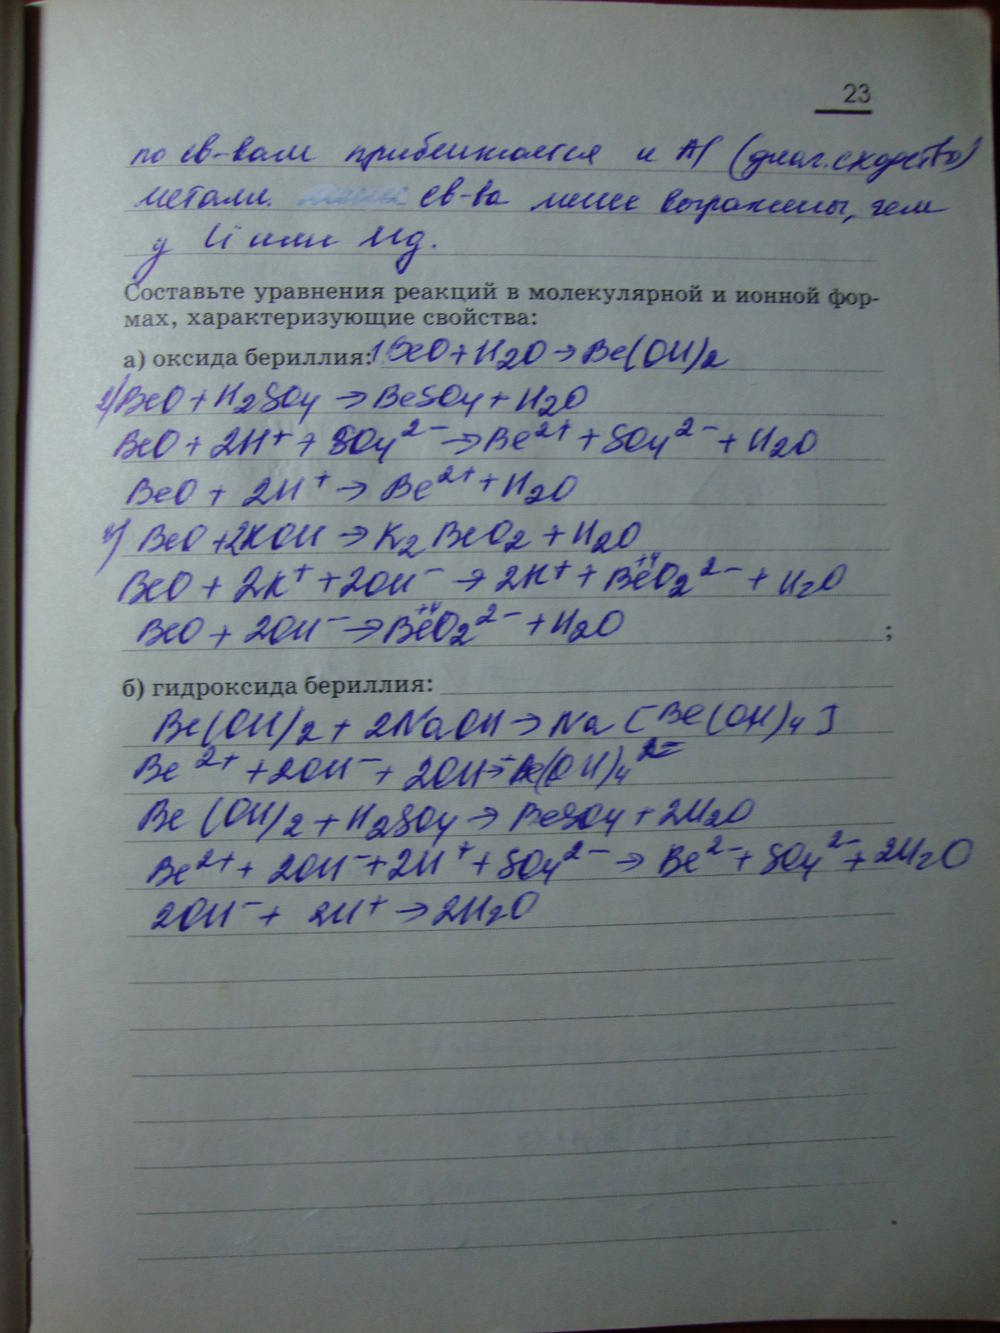 23
по св-вам приближается к Al (диаг. сходство)
металл. св-ва менее выражены, чем
у Li или Mg.
Составьте уравнения реакций в молекулярной и ионной фор-
мах, характеризующие свойства:
а) оксида бериллия: 1. BeO + H2O → Be(OH)2
2) BeO + H2SO4 → BeSO4 + H2O
BeO + 2H⁺ + SO4²⁻ → Be²⁺ + SO4²⁻ + H2O
BeO + 2H⁺ → Be²⁺ + H2O
BeO + 2KOH → K2BeO2 + H2O
BeO + 2K⁺ + 2OH⁻ → 2K⁺ + BeO2²⁻ + H2O
BeO + 2OH⁻ → BeO2²⁻ + H2O ;
б) гидроксида бериллия:
Be(OH)2 + 2NaOH → Na [Be(OH)4]
Be²⁺ + 2OH⁻ + 2OH⁻ → Be(OH)4²⁻
Be(OH)2 + H2SO4 → BeSO4 + 2H2O
Be²⁺ + 2OH⁻ + 2H⁺ + SO4²⁻ → Be²⁻ + SO4²⁻ + 2H2O
2OH⁻ + 2H⁺ → 2H2O